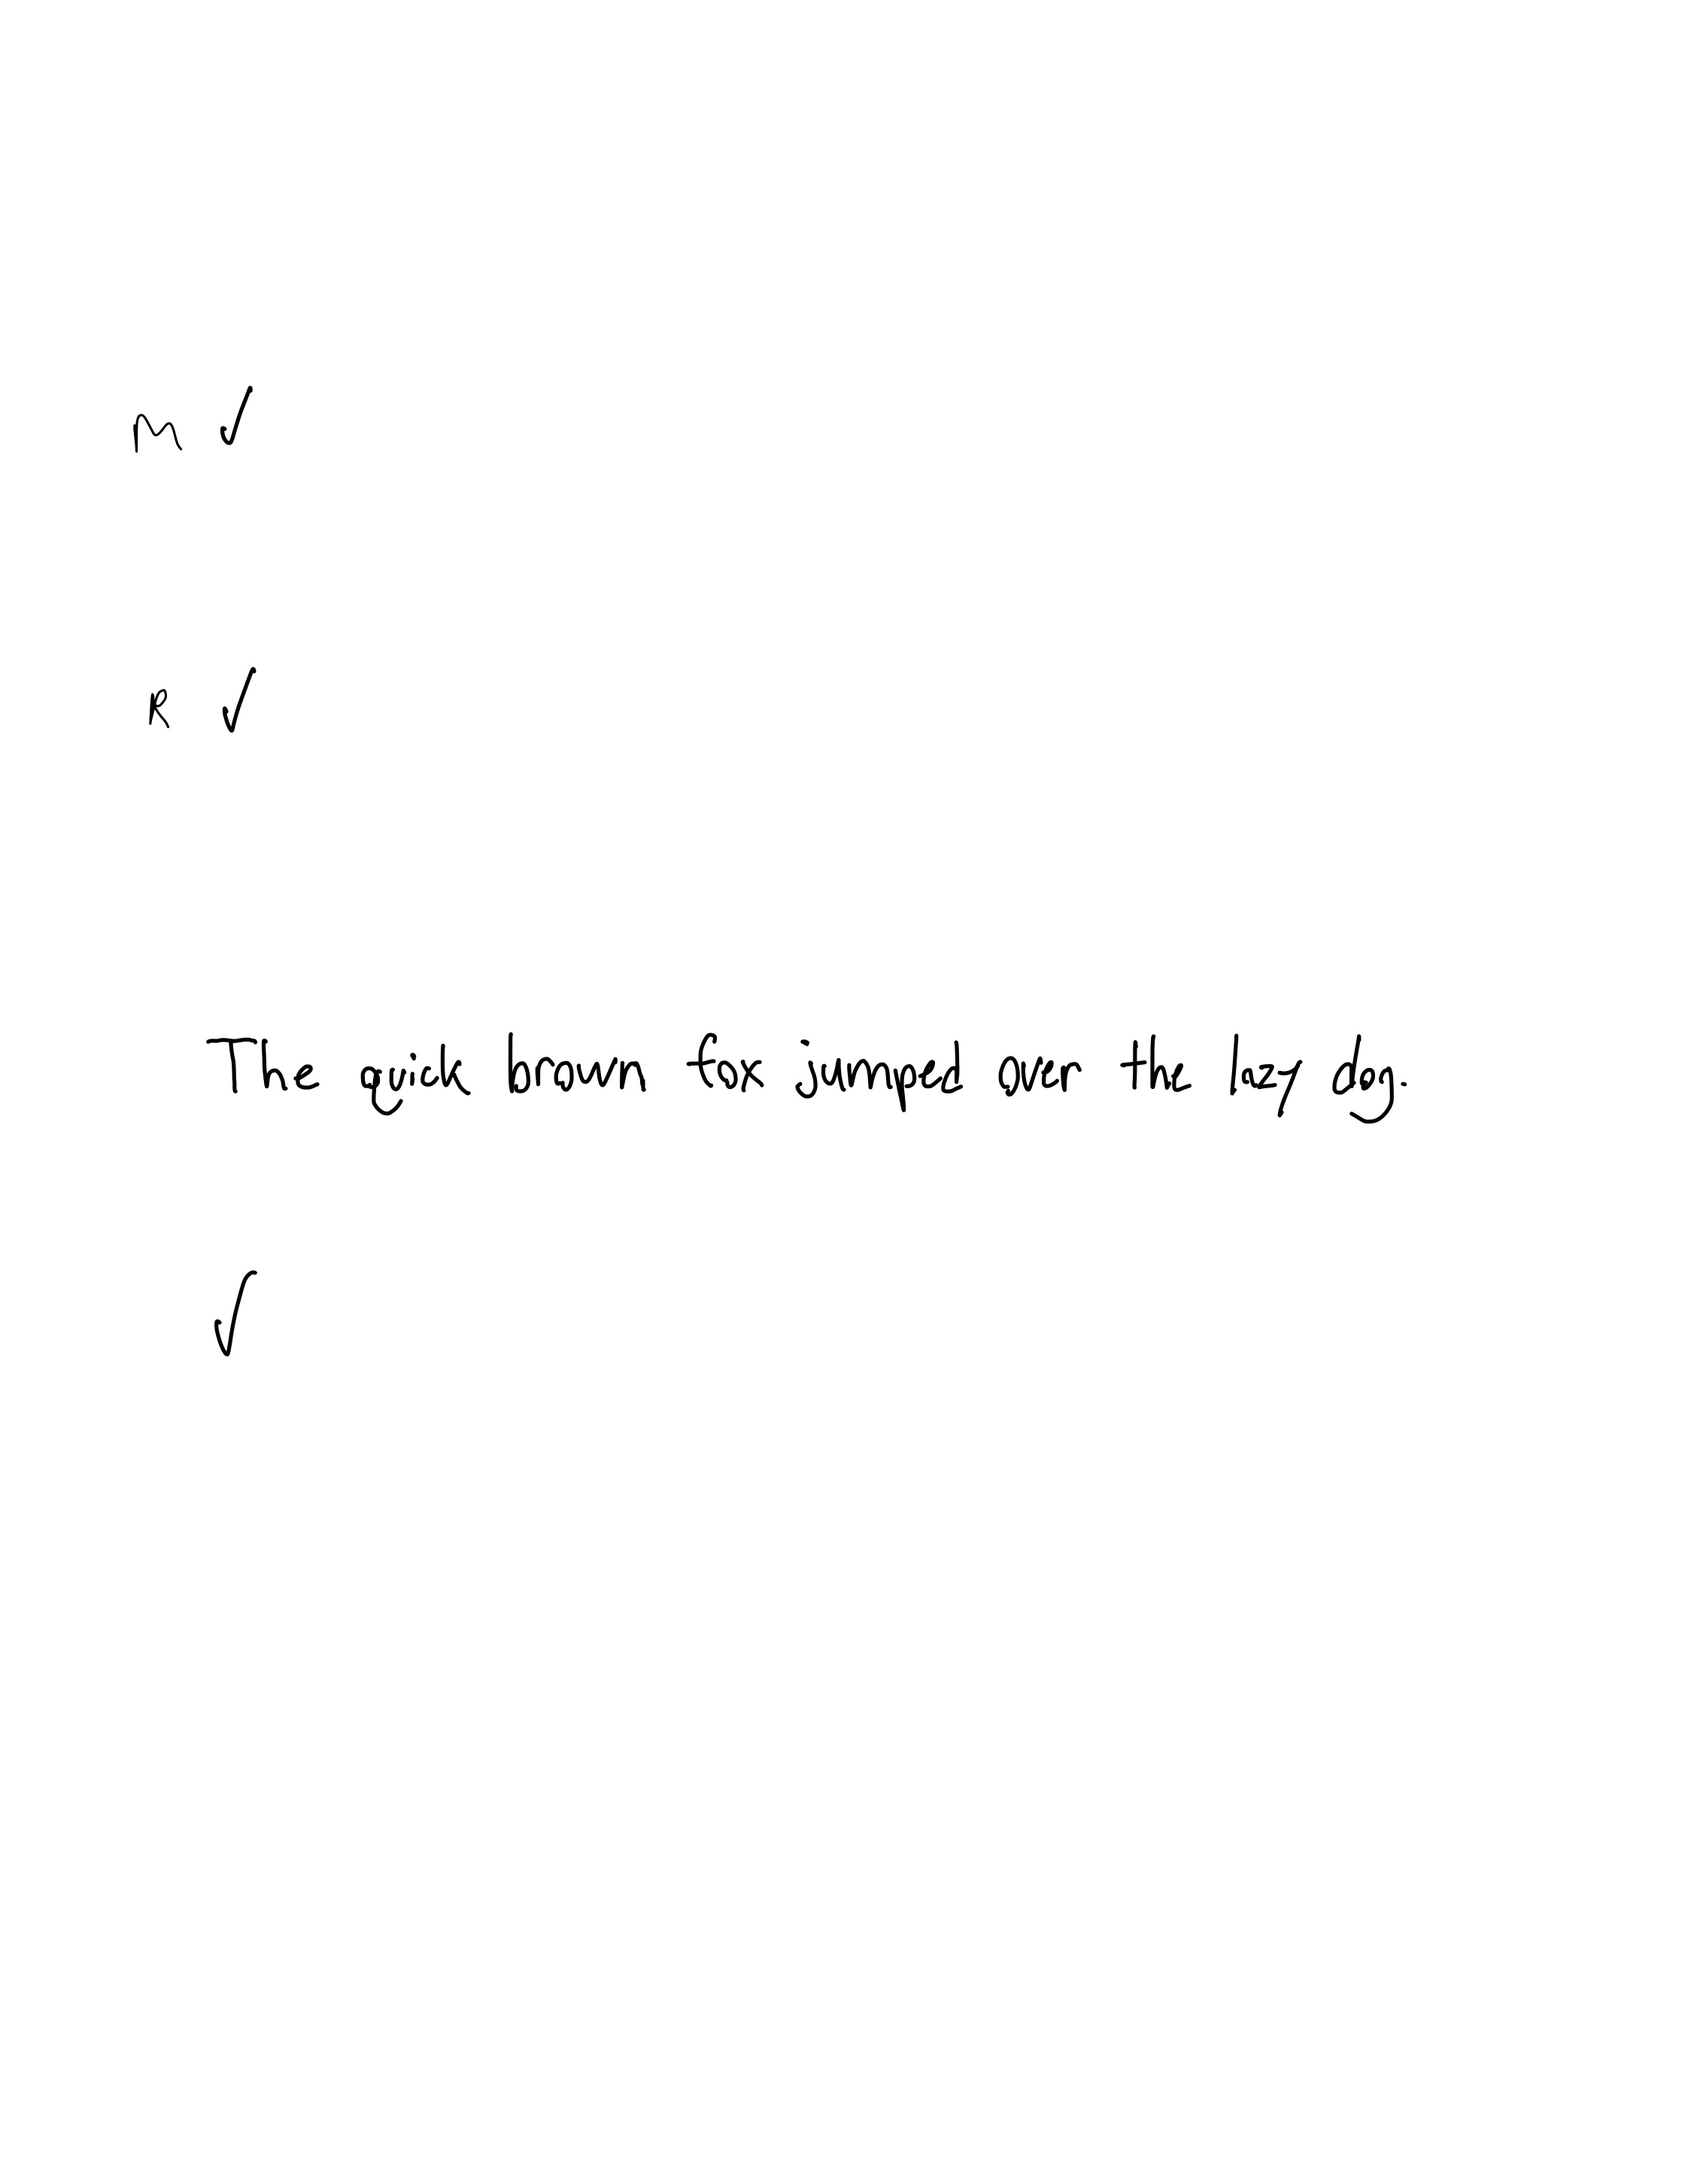 M ✓
R ✓
The quick brown fox jumped over the lazy dog.
✓